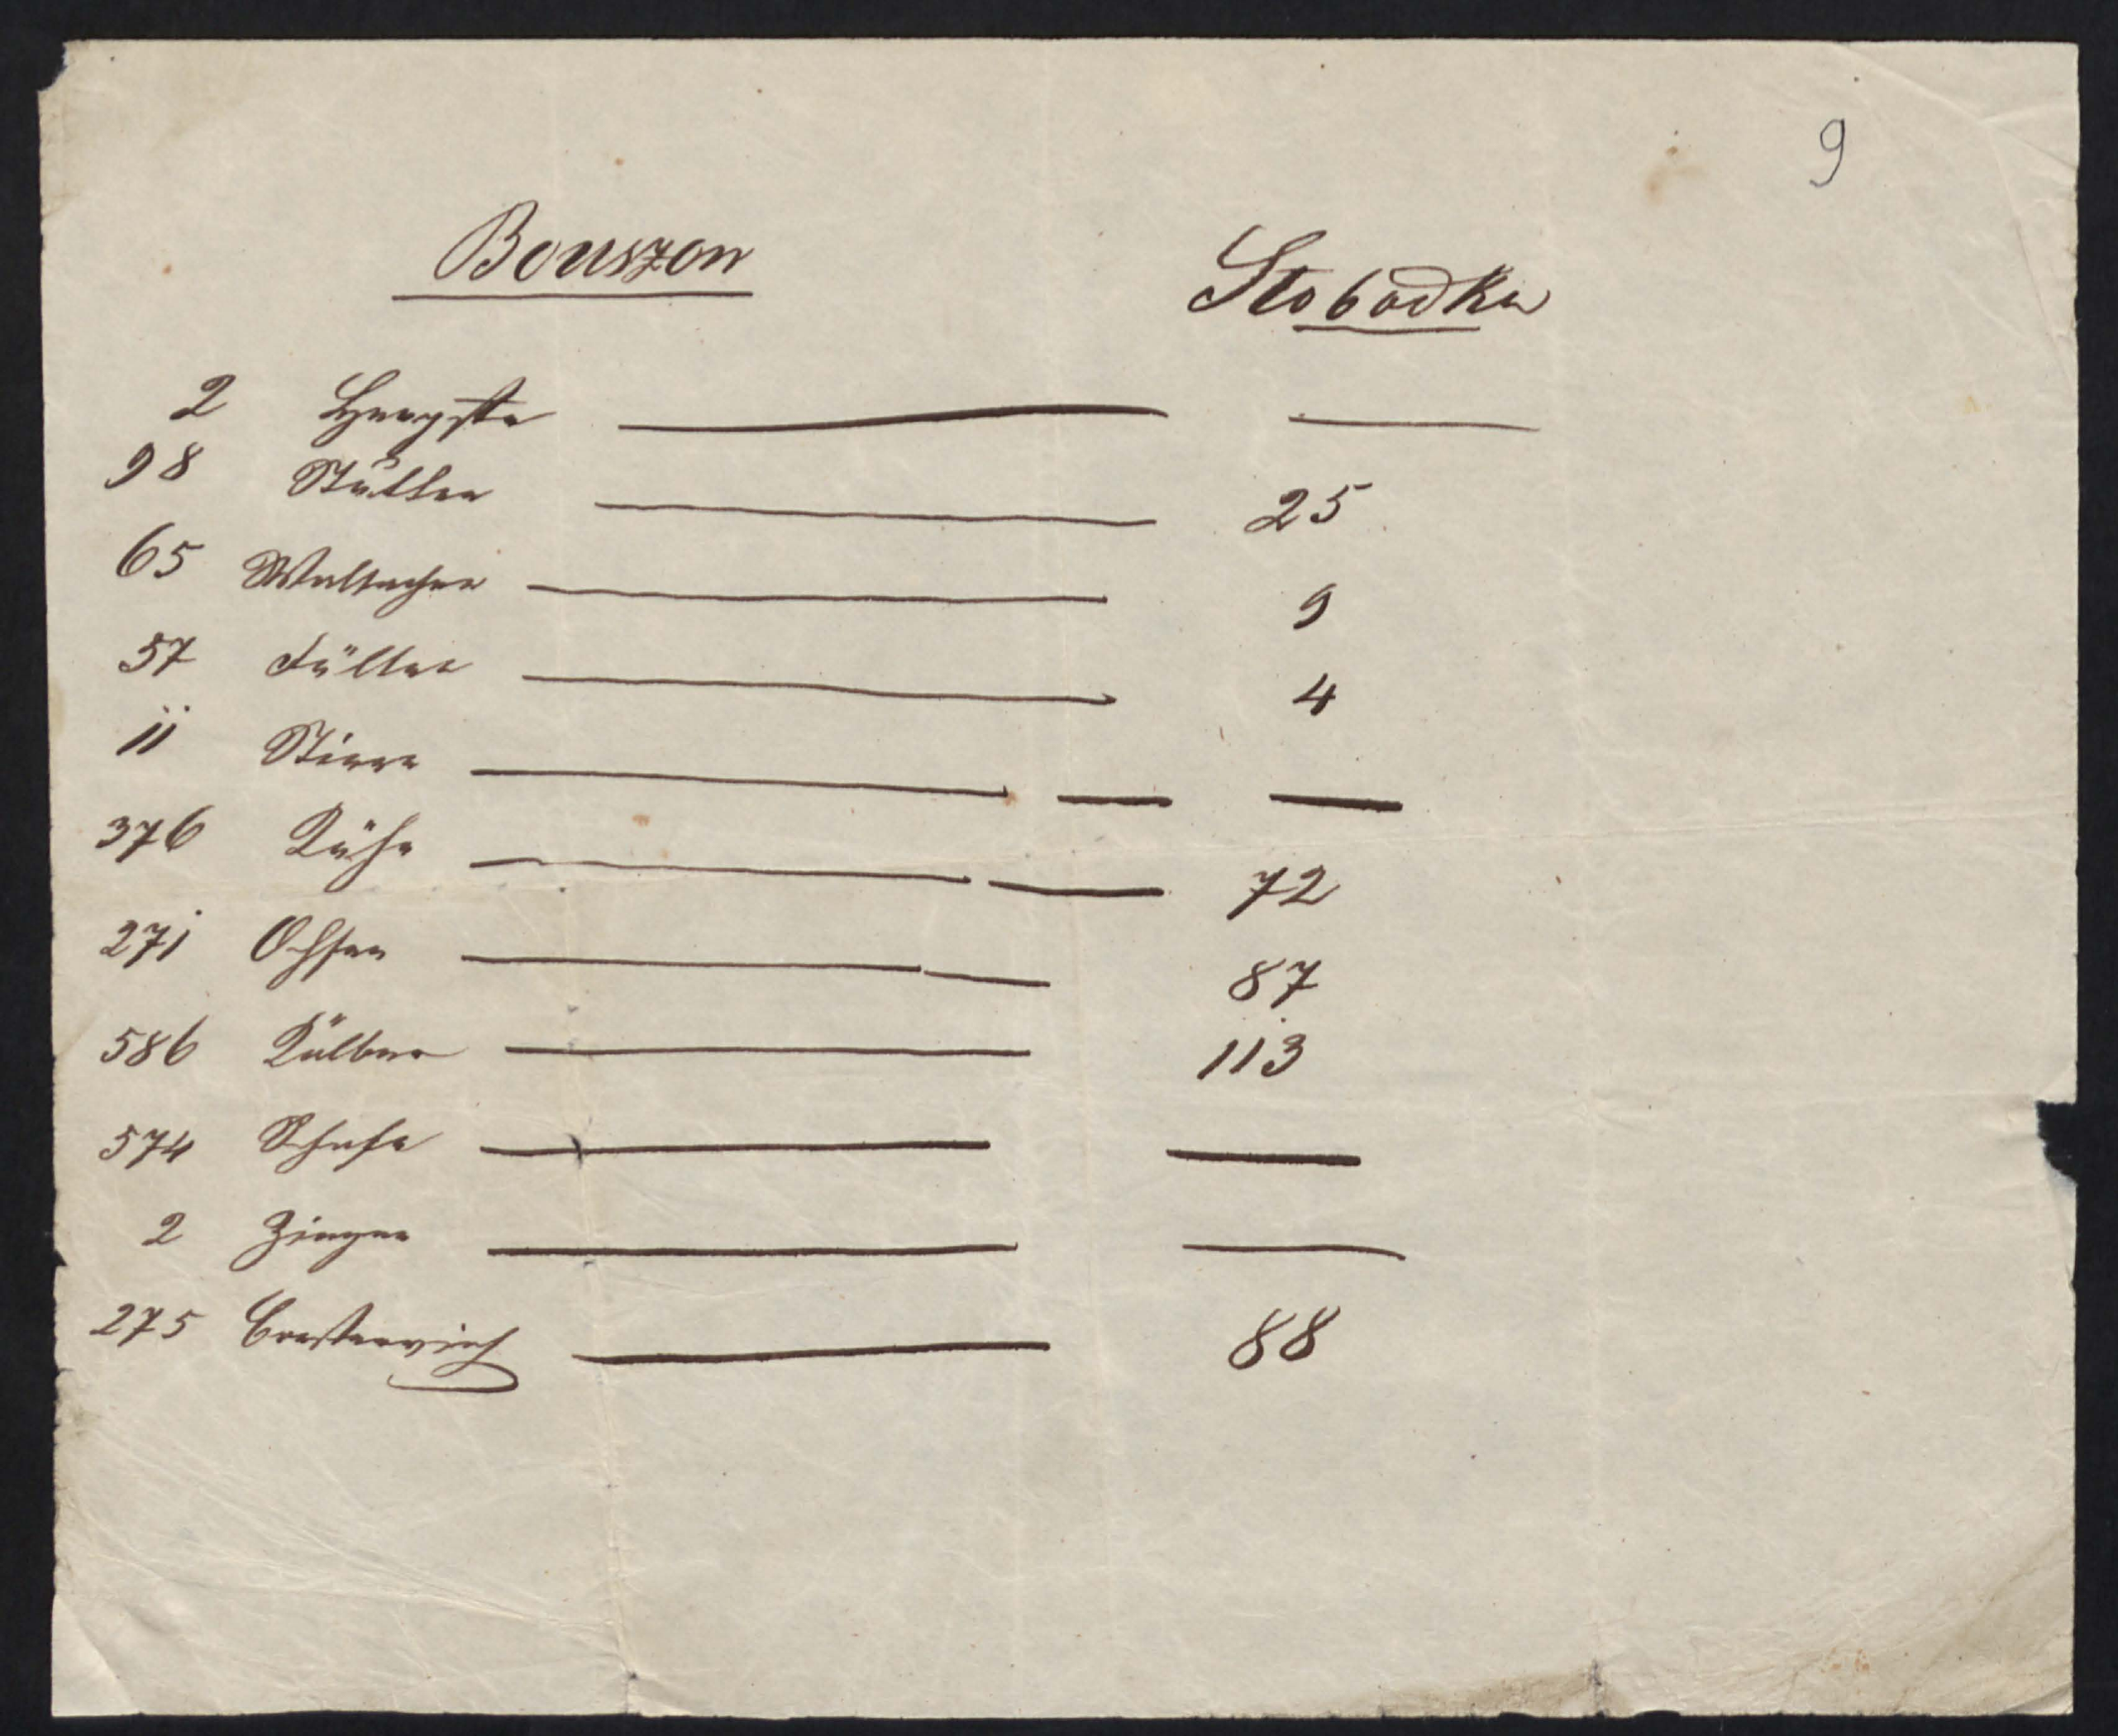 9
Bouszon Slobodka
2 Hengste — —
98 Stutten — 25
65 Wallachen — 9
57 Füllen — 4
11 Stiere — —
376 Kühe — 72
271 Ochsen — 87
586 Kälber — 113
574 Schafe — —
2 Ziegen — —
275 Borstenvieh — 88